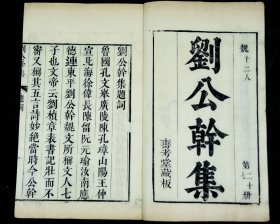 魏十二人
第二十册
劉公幹集
壽考堂藏板
劉公幹集題詞
魯國孔文舉廣陵陳孔璋山陽王仲
宣北海徐偉長陳留阮元瑜汝南應
德璉東平劉公幹魏文所稱文人七
子也文帝云劉楨章表書記壯而不
密又稱其五言詩妙絶當時今公幹